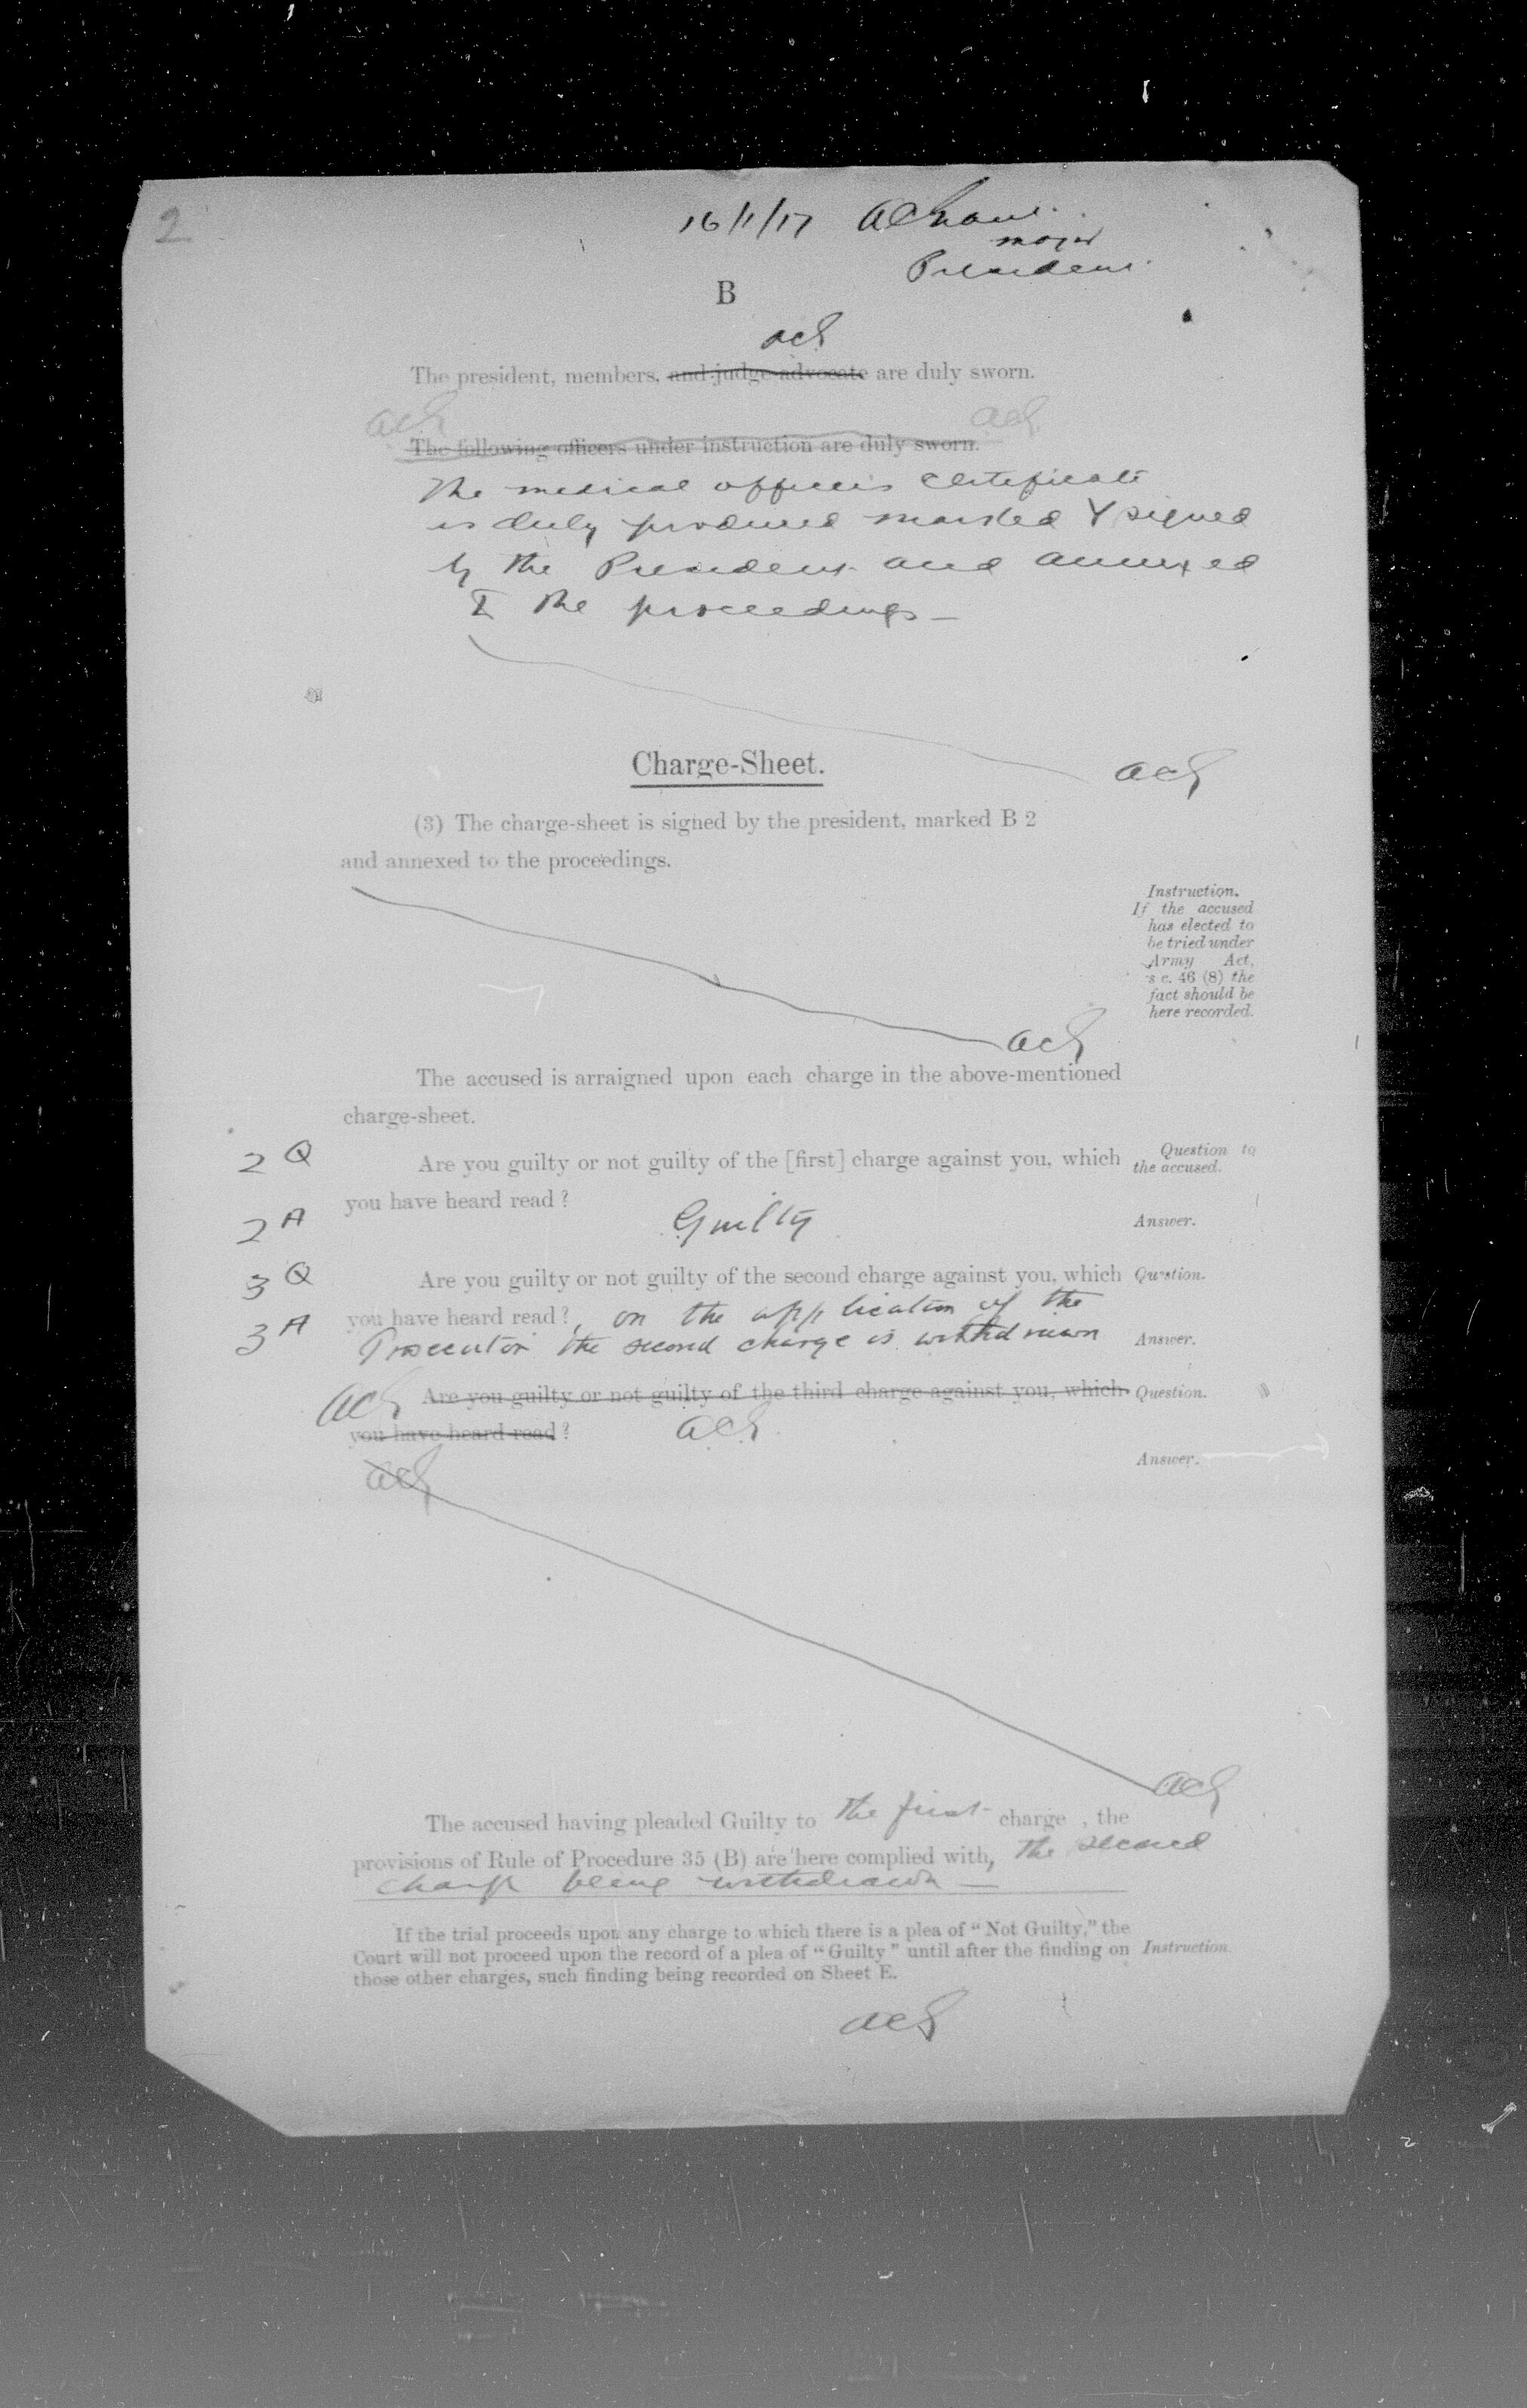 2
16/1/17
Major
President
B
ACS
The president, members, and judge-advocate are duly sworn.
ACS ACS
The following officers under instruction are duly sworn.
The medical officers certificate
is duly produced marked Y signed
by the President and annexed
to the proceedings —
Charge-Sheet.
ACS
(3) The charge-sheet is signed by the president, marked B 2
and annexed to the proceedings.
Instruction.
If the accused
has elected to
be tried under
Army Act,
s c. 46 (8) the
fact should be
here recorded.
ACS
The accused is arraigned upon each charge in the above-mentioned
charge-sheet.
2 Q Are you guilty or not guilty of the [first] charge against you, which Question to
the accused.
you have heard read ?
2 A Guilty Answer.
3 Q Are you guilty or not guilty of the second charge against you, which Question.
you have heard read ?, on the application of the
3 A Prosecutor the second charge is withdrawn Answer.
ACS Are you guilty or not guilty of the third charge against you, which Question.
you have heard read ? ACS
Answer.
ACS
ACS
The accused having pleaded Guilty to the first charge , the
provisions of Rule of Procedure 35 (B) are here complied with, the second
charge being withdrawn —
If the trial proceeds upon any charge to which there is a plea of “ Not Guilty,” the
Court will not proceed upon the record of a plea of “ Guilty ” until after the finding on Instruction.
those other charges, such finding being recorded on Sheet E.
ACS